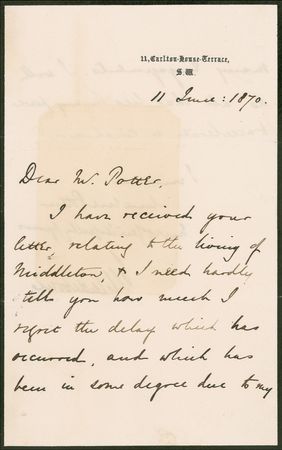 11, Carlton-House-Terrace,
S.W.
11 June: 1870.
Dear Mr. Potter,
I have received your
letter, relating to the living of
Middleton, & I need hardly
tell you how much I
regret the delay which has
occurred, and which has
been in some degree due to my